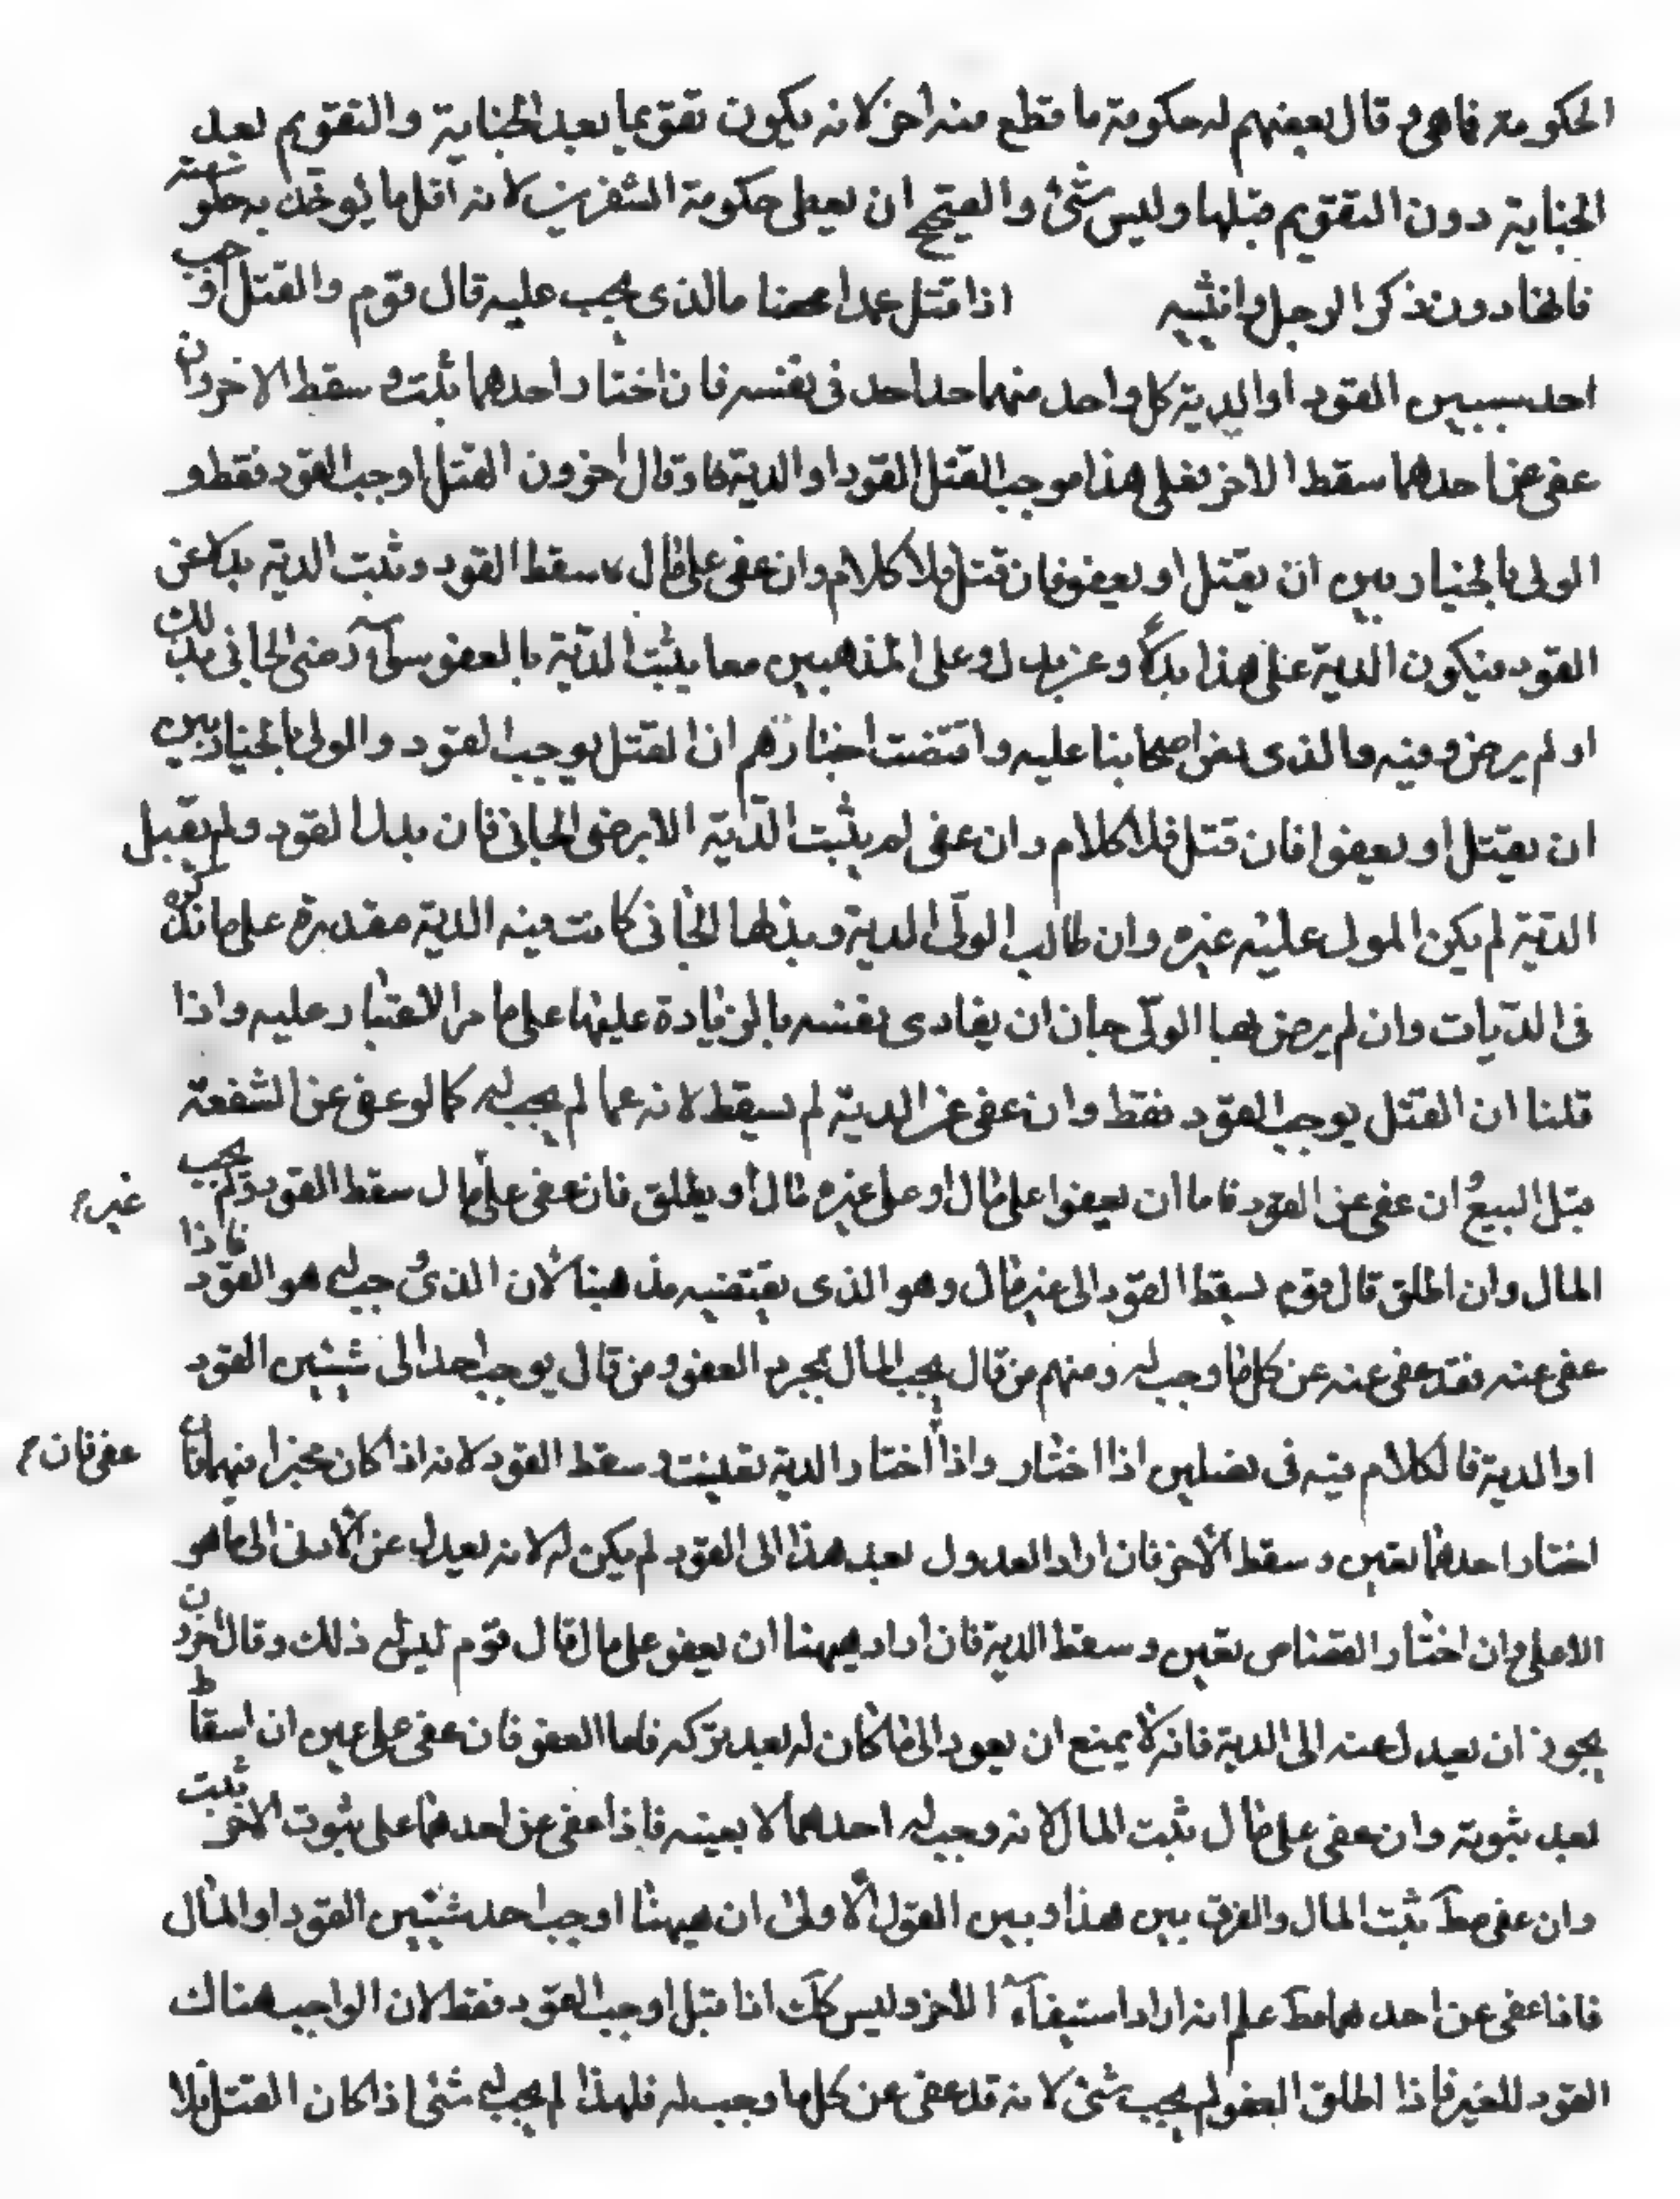 الحكومة فما هي قال بعضهم له حكومة ما قطع منه اخر لانه يكون تقويما بعد الجناية والتقويم بعد
الجناية دون التقويم قبلها وليس شئ والصحيح ان يعطى حكومة الشفرين لانه اقل ما يوخذ به حكومته
فانها دون ذكر الرجل وانثييه اذا قتل عمدا محضا ما الذى يجب عليه قال قوم والقتل اوجب
احد سببين القود او الدية كل واحد منهما احد في نفسه فان اختار احدهما ثبت وسقط الاخر وان
عفى عن احدهما سقط الاخر فعلى هذا موجب القتل القود او الدية وقال اخرون القتل اوجب القود فقط و
الولى بالخيار بين ان يقتل او يعفو فان قتل فلا كلام وان عفى على مال سقط القود وثبت الدية بدلا عن
القود فيكون الدية على هذا بدلا وعن بدل وعلى المذهبين معا يثبت الدية بالعفو سوآء رضى الجانى بذلك
او لم يرض وفيه والذى نص اصحابنا عليه واقتضت اخبارهم ان القتل يوجب القود والولى بالخيار بين
ان يقتل او يعفوا فان قتل فلا كلام وان عفى لم يثبت الدّية الا برضى الجانى فان بذل القود ولم يقبل
الدّية لم يكن المولى عليه غيره وان طالب الولّى الدية وبذلها الجانى كانت فيه الدية مقدرة على ما نذكره
في الدّيات وان لم يرض بها الولّى جاز ان يفادى نفسه بالزيادة عليها على ما مر الاعتبار عليه واذا
قلنا ان القتل يوجب القود فقط وان عفى عن الدية لم يسقط لانه عما لم يجب له كما لو عفى عن الشفعة
قبل البيع ان عفى عن القود فاما ان يعفوا على مال او على غيره مال او يطلق فان عفى على مال سقط القود ولم يجب
غيره
المال وان اطلق قال قوم يسقط القود الى غير مال وهو الذى يقتضيه مذهبنا لان الذى وجب له هو القود فاذا
عفى عنه فقد عفى عنه عن كل ما وجب له ومنهم من قال يجب المال بمجرد العفو ومن قال يوجب احد الى شيئين القود
او الدية فالكلام فيه في فصلين اذا اختار واذا اختار الدية تعينت وسقط القود لانه اذا كان مخيرا فيهما فان
عفى فان
اختار احدهما تعين وسقط الاخر فان اراد العدول بعد هذا الى القود لم يكن له لانه يعدل عن الادنى الى ما هو
الاعلى وان اختار القصاص تعين وسقط الدية فان اراد هيهنا ان يعفو على مال قال قوم ليس له ذلك وقال اخرون
يجوز ان يعدل عنه الى الدية فانه لا يمتنع ان يعود الى ما كان له بعد تركه فاما العفو فان عفى على عين ان اسقاط
بعد ثبوته وان عفى على مال ثبت المال لانه وجب له احدهما لا بعينه فاذا عفى عن احدهما على ثبوت الاخر ثبت
وان عفى مط ثبت المال والفرق بين هذا وبين القول الاولى ان هيهنا اوجب احد شيئين القود او المال
فاذا عفى عن احدهما مط علم انه اراد استيفآء الاخر وليس كك اذا قيل اوجب القود فقط لان الواجب هناك
القود للغير فاذا اطلق العفو لم يجب شئ لانه قد عفى عن كل ما وجب له فلهذا لم يجب له شئ اذا كان القتل فلا